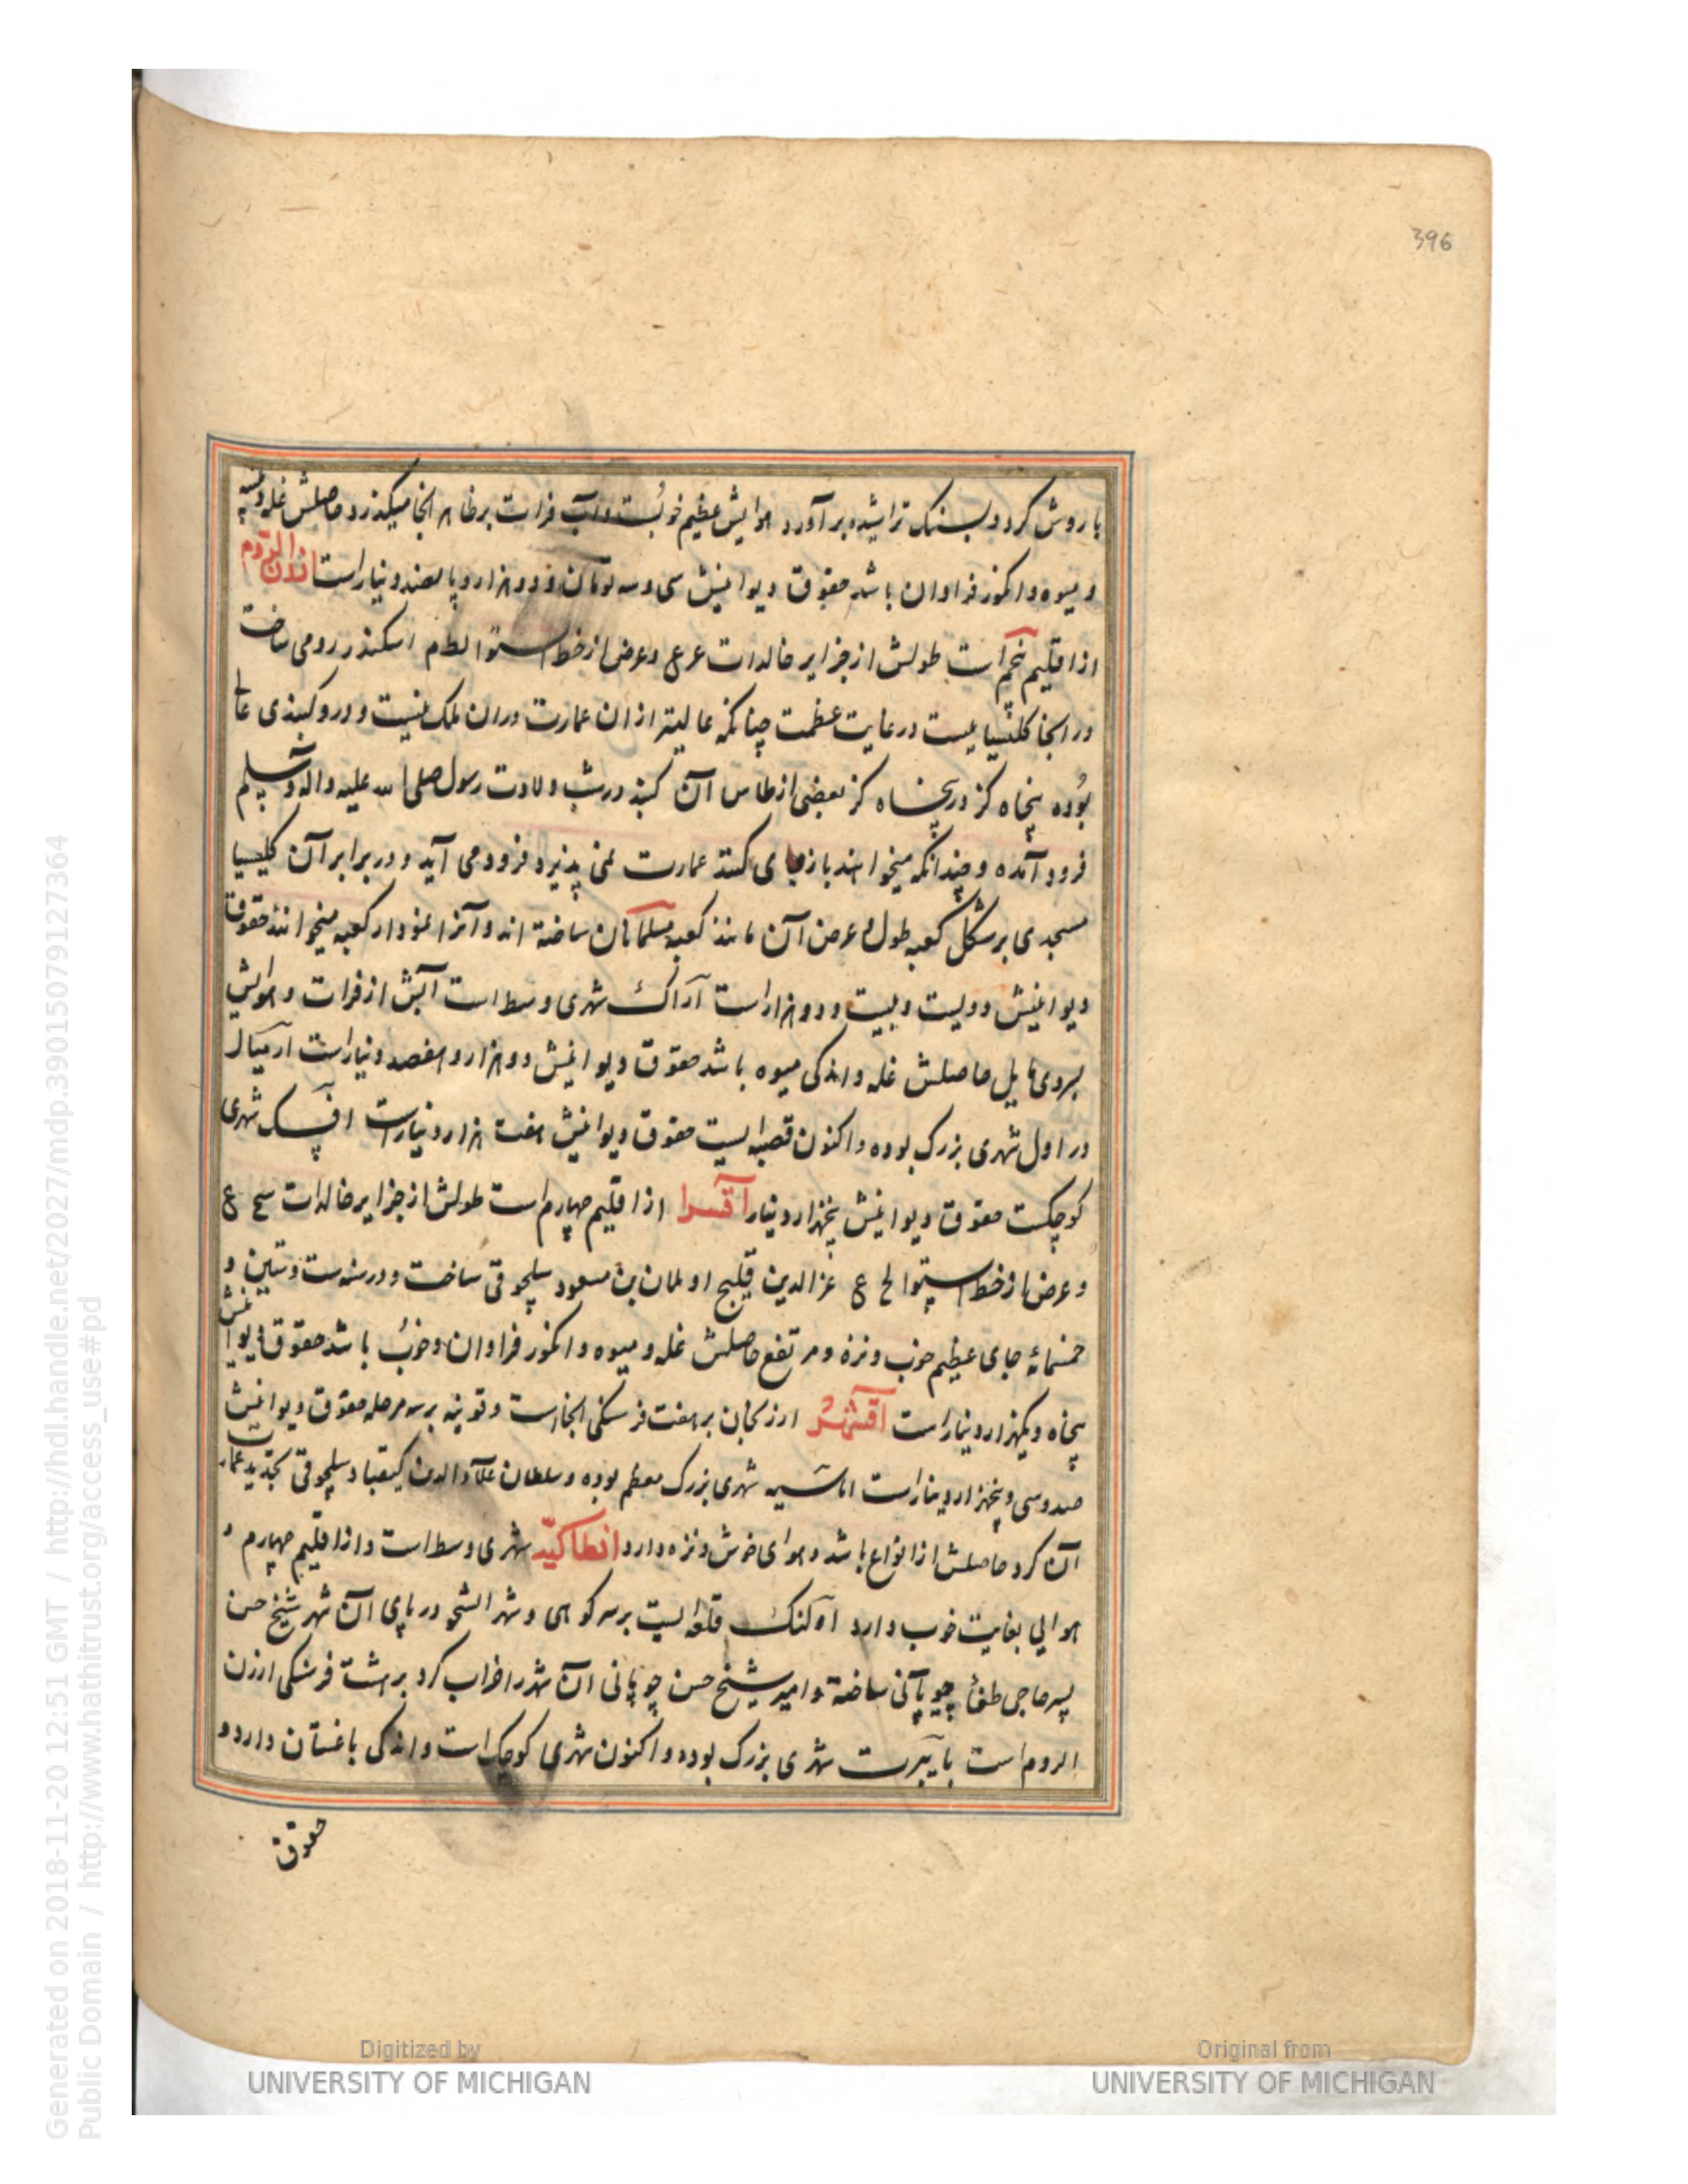 396
باروش کرد و بسنک تراشیده برآورد هوایش عظیم خوبست و آب فرات بر ظاهر انجا میکذرد حاصلش غله و پنبه
و میوه و انکور فراوان باشد حقوق دیوانیش سی و سه تومان و دو هزار و پانصد دینار است ارزن الروم
از اقلیم پنجم است طولش از جزایر خالدات ع ع وعرض از خط استوا لط م اسکندر رومی ساخت
در انجا کلیسیاییست در غایت عظمت چنانکه عالیتر از ان عمارت دران ملک نیست و در و کنبذی عالی
بوده پنجاه کز در پنجاه کز بعضی از طاس آن کنبذ در شب ولادت رسول صلی الله علیه واله وسلم
فرود آمده و چندانکه میخواهند باز جای کنند عمارت نمی پذیرد فرود می آید و در برابر آن کلیسیا
مسجدی بر شکل کعبه طول و عرض آن مانند کعبه مسلمانان ساخته اند و آنرا نمودار کعبه میخوانند حقوق
دیوانیش دویست و بیست و دو هزار است آراک شهری وسط است آبش از فرات و هوایش
بسردی مایل حاصلش غله و اندکی میوه باشد حقوق دیوانیش دو هزار و هفصد دینار است ارمیال
در اول شهری بزرک بوده و اکنون قصبه ایست حقوق دیوانیش هفت هزار دینار است افسک شهری
کوچکست حقوق دیوانیش پنجهزار دینار آقسرا از اقلیم چهارم است طولش از جزایر خالدات سح ع
و عرض از خط استوا لح ع عزالدین قلیج ارسلان بن مسعود سلجوقی ساخت و در سنه ست و ستین و
خمسمائه جای عظیم خوب و نزه و مرتفع حاصلش غله و میوه و انکور فراوان و خوب باشد حقوق دیوانیش
پنجاه و یکهزار دینار است اقشهر ارزنجان بر هفت فرسنکی انجاست و قونیه بر سه مرحله حقوق دیوانیش
صد و سی و پنجهزار دینار است اماسیه شهری بزرک معظم بوده و سلطان علاء الدین کیقباد سلجوقی تجدید عمارت
آن کرد حاصلش از انواع باشد و هوای خوش و نزه دارد انطاکیه شهری وسط است و از اقلیم چهارم و
هوایی بغایت خوب دارد اوکنک قلعه ایست بر سر کوهی و شهر الشجو در پای ان شهر شیخ حسن
پسر حاجی طغا چوپانی ساخته و امیر شیخ حسن چوپانی آن شهر را خراب کرد بر هشت فرسنکی ارزن
الروم است بایبرت شهری بزرک بوده و اکنون شهری کوچک است و اندکی باغستان دارد و
حقوق
Generated on 2018-11-20 12:51 GMT / http://hdl.handle.net/2027/mdp.39015079127364
Public Domain / http://www.hathitrust.org/access_use#pd
Digitized by
UNIVERSITY OF MICHIGAN
Original from
UNIVERSITY OF MICHIGAN